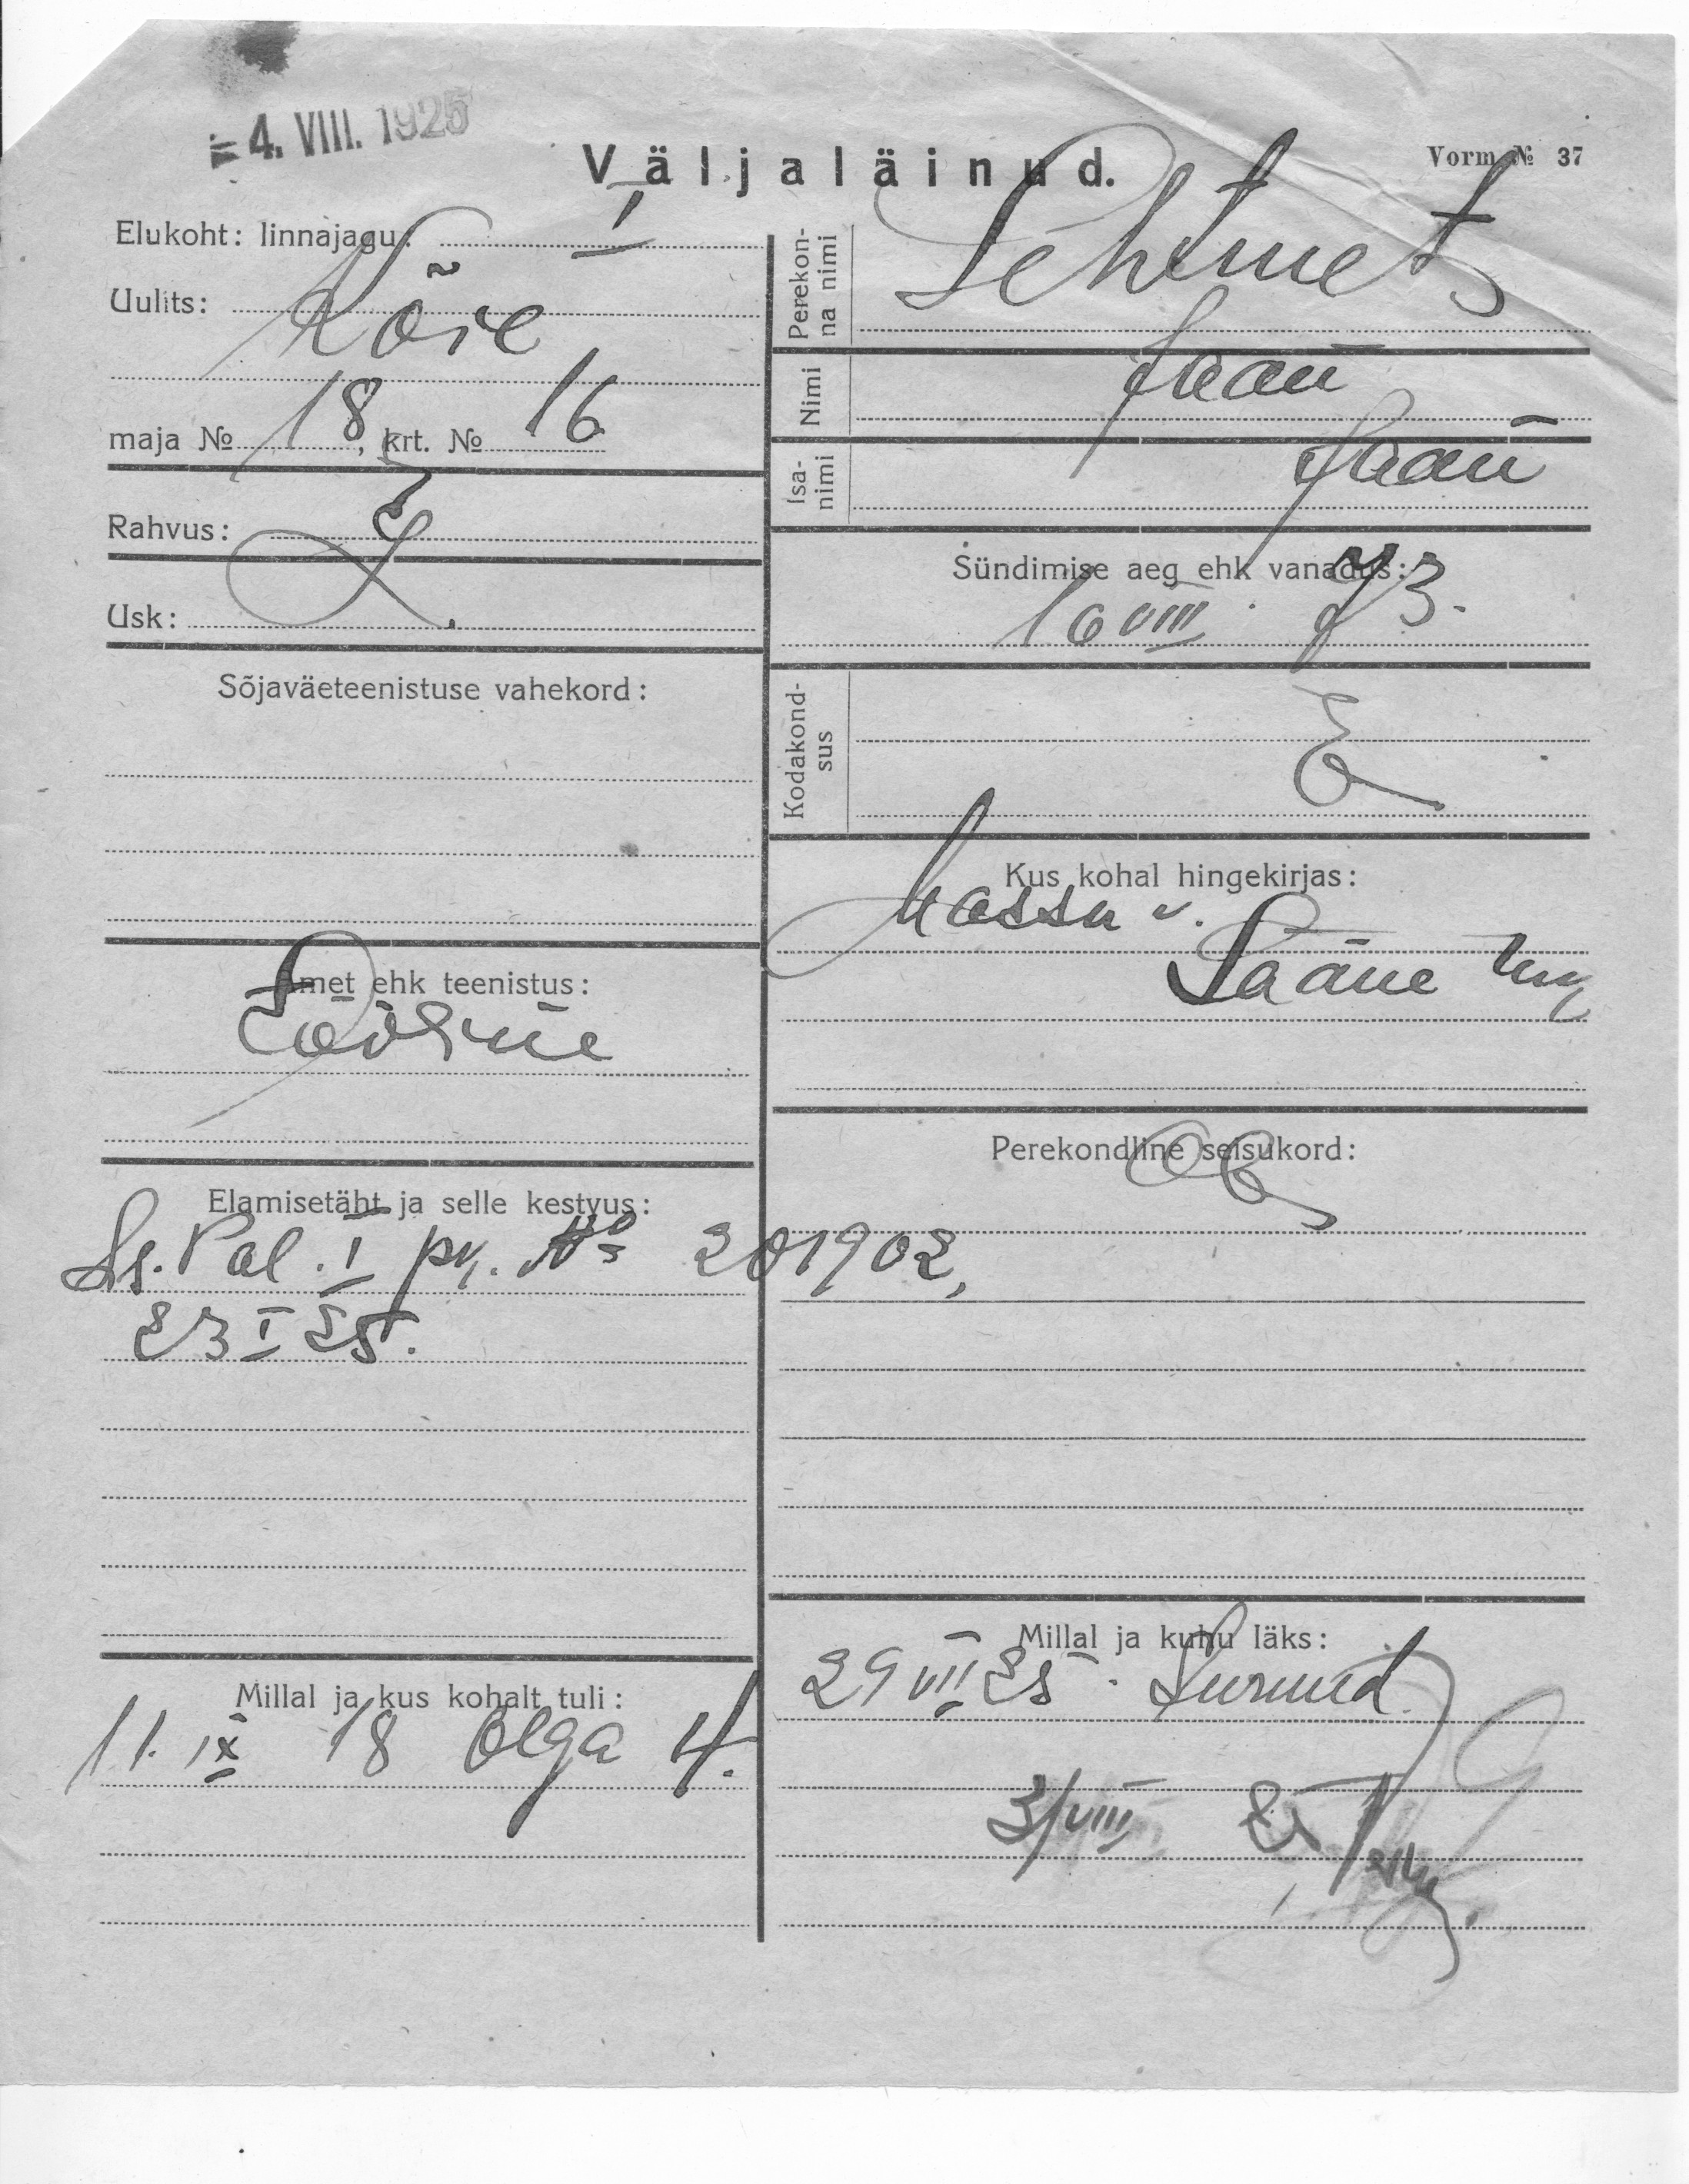 - 4. VIII. 1925
Väljaläinud.
Vorm № 37
Elukoht: linnajagu: I
Uulits: Kõie
maja № 18, krt. № 16
Rahvus: E
Usk: L.
Sõjaväeteenistuse vahekord:
Amet ehk teenistus:
Tööline
Elamisetäht ja selle kestvus:
Is. Pol. I pk. № 201902,
23 I 25.
Millal ja kus kohalt tuli:
11. IX 18 Olga 4.
Perekonna nimi Lehtmets
Nimi Jaan
Isanimi Jaan
Sündimise aeg ehk vanadus:
16 VIII 73.
Kodakondsus E
Kus kohal hingekirjas:
Massu v.
Lääne
Perekondline seisukord:
Millal ja kuhu läks:
29 VII 25. Surnud.
3/VIII